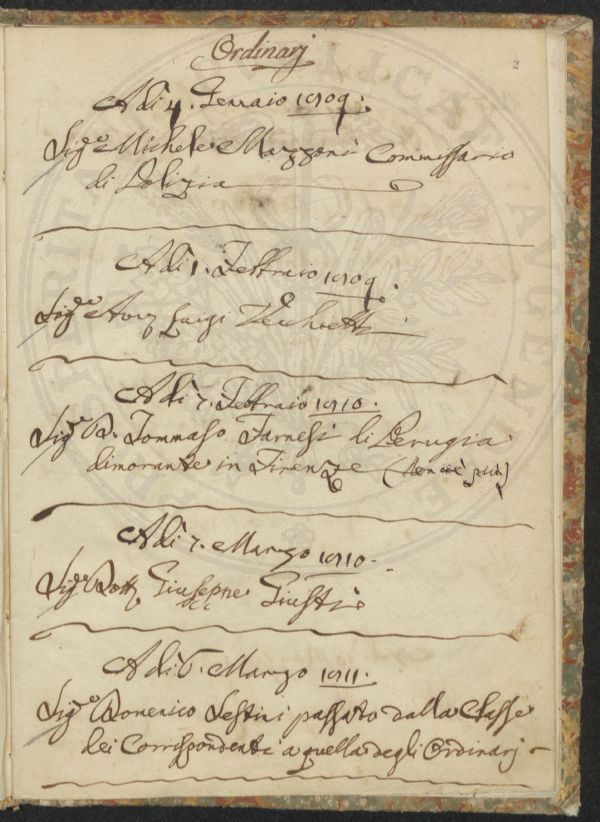 Ordinarj
2
Adì 4. Gennaio 1809.
Sig.e Michele Mazzoni Commissario
di Polizia
Adì 1. Febbraio 1809.
Sig.re Avv. Luigi Vecchietti
Adì 7. Febbraio 1810.
Sig.e D. Tommaso Farnesi di Perugia
dimorante in Firenze (non c'è più)
Adì 7. Marzo 1810.
Sig.e Dott. Giuseppe Giusti
Adì 6. Marzo 1811.
Sig.e Domenico Sestini passato dalla Classe
dei Corrispondenti a quella degli Ordinarj
PROSPERITATI PVBLICAE AVGENDAE